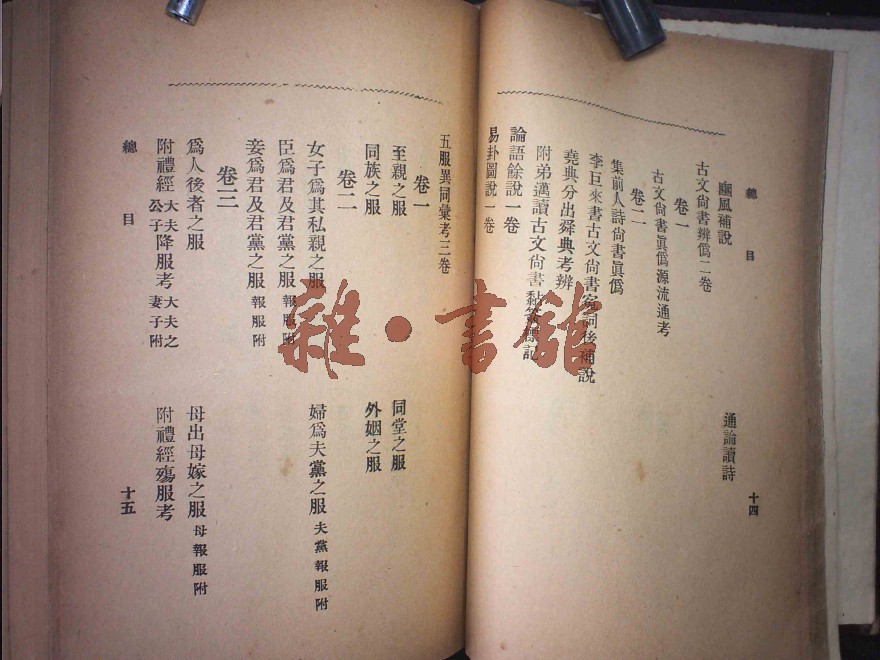 總目
十四
豳風補說
通論讀詩
古文尙書辨僞二卷
卷一
古文尙書眞僞源流通考
卷二
集前人詩尙書眞僞
李巨來書古文尙書寃詞後補說
堯典分出舜典考辨
附弟邁讀古文尙書黏簽標記
論語餘說一卷
易卦圖說一卷
五服異同彙考三卷
卷一
至親之服
同堂之服
同族之服
外姻之服
卷二
女子爲其私親之服
婦爲夫黨之服 夫黨報服附
臣爲君及君黨之服 報服附
妾爲君及君黨之服 報服附
卷三
爲人後者之服
母出母嫁之服 母報服附
附禮經大夫公子降服考 大夫之妻子附
附禮經殤服考
總目
十五
雜·書館